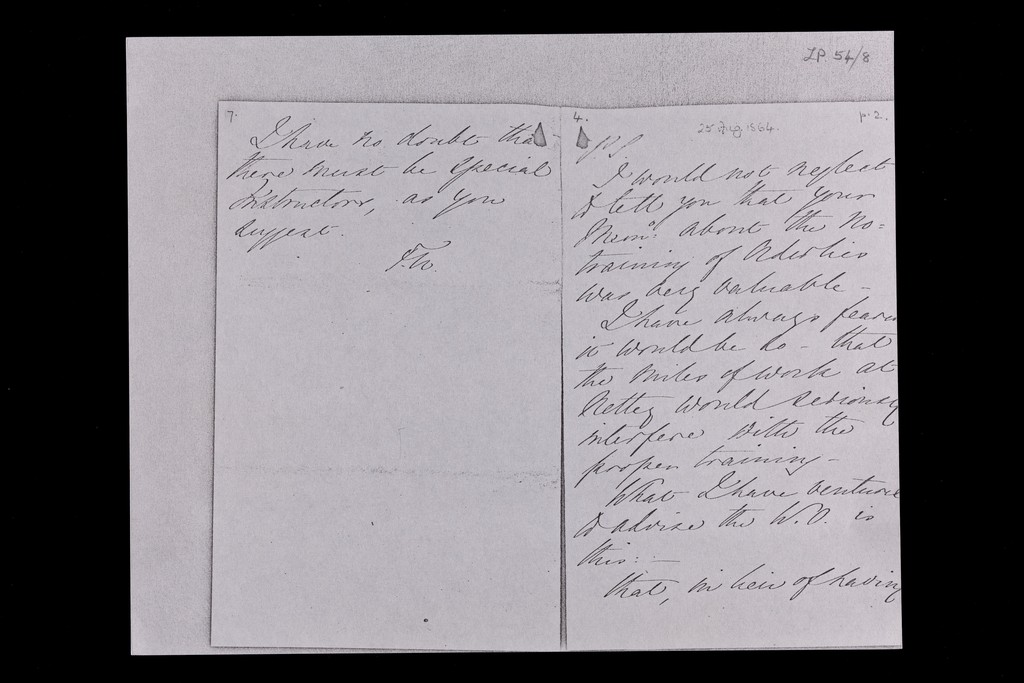 LP 54/8
7.
I have no doubt that
there must be special
Instructors, as you
suggest.
F.N.
4.
25 Aug 1864.
p. 2.
P.S.
I would not neglect
to tell you that your
Memo: about the no-
training of Orderlies
was very valuable -
I have always feared
it would be so - that
the miles of work at
Netley would seriously
interfere with the
proper training -
What I have ventured
to advise the W.O. is
this: -
that, in lieu of having